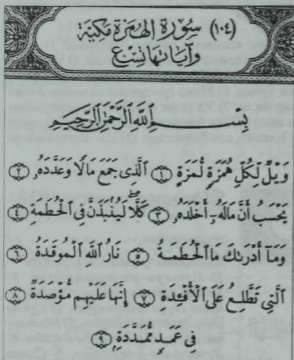 (١٠٤) سُورَةُ الهُمَزَةِ مَكِيَّة
وَآيَاتُهَا تِسْعٌ
بِسْمِ ٱللَّهِ ٱلرَّحْمَٰنِ ٱلرَّحِيمِ
وَيْلٌ لِّكُلِّ هُمَزَةٍ لُّمَزَةٍ ١ ٱلَّذِى جَمَعَ مَالًا وَعَدَّدَهُۥ ٢
يَحْسَبُ أَنَّ مَالَهُۥٓ أَخْلَدَهُۥ ٣ كَلَّا ۖ لَيُنۢبَذَنَّ فِى ٱلْحُطَمَةِ ٤
وَمَآ أَدْرَىٰكَ مَا ٱلْحُطَمَةُ ٥ نَارُ ٱللَّهِ ٱلْمُوقَدَةُ ٦
ٱلَّتِى تَطَّلِعُ عَلَى ٱلْأَفْـِٔدَةِ ٧ إِنَّهَا عَلَيْهِم مُّؤْصَدَةٌ ٨
فِى عَمَدٍ مُّمَدَّدَةٍۭ ٩